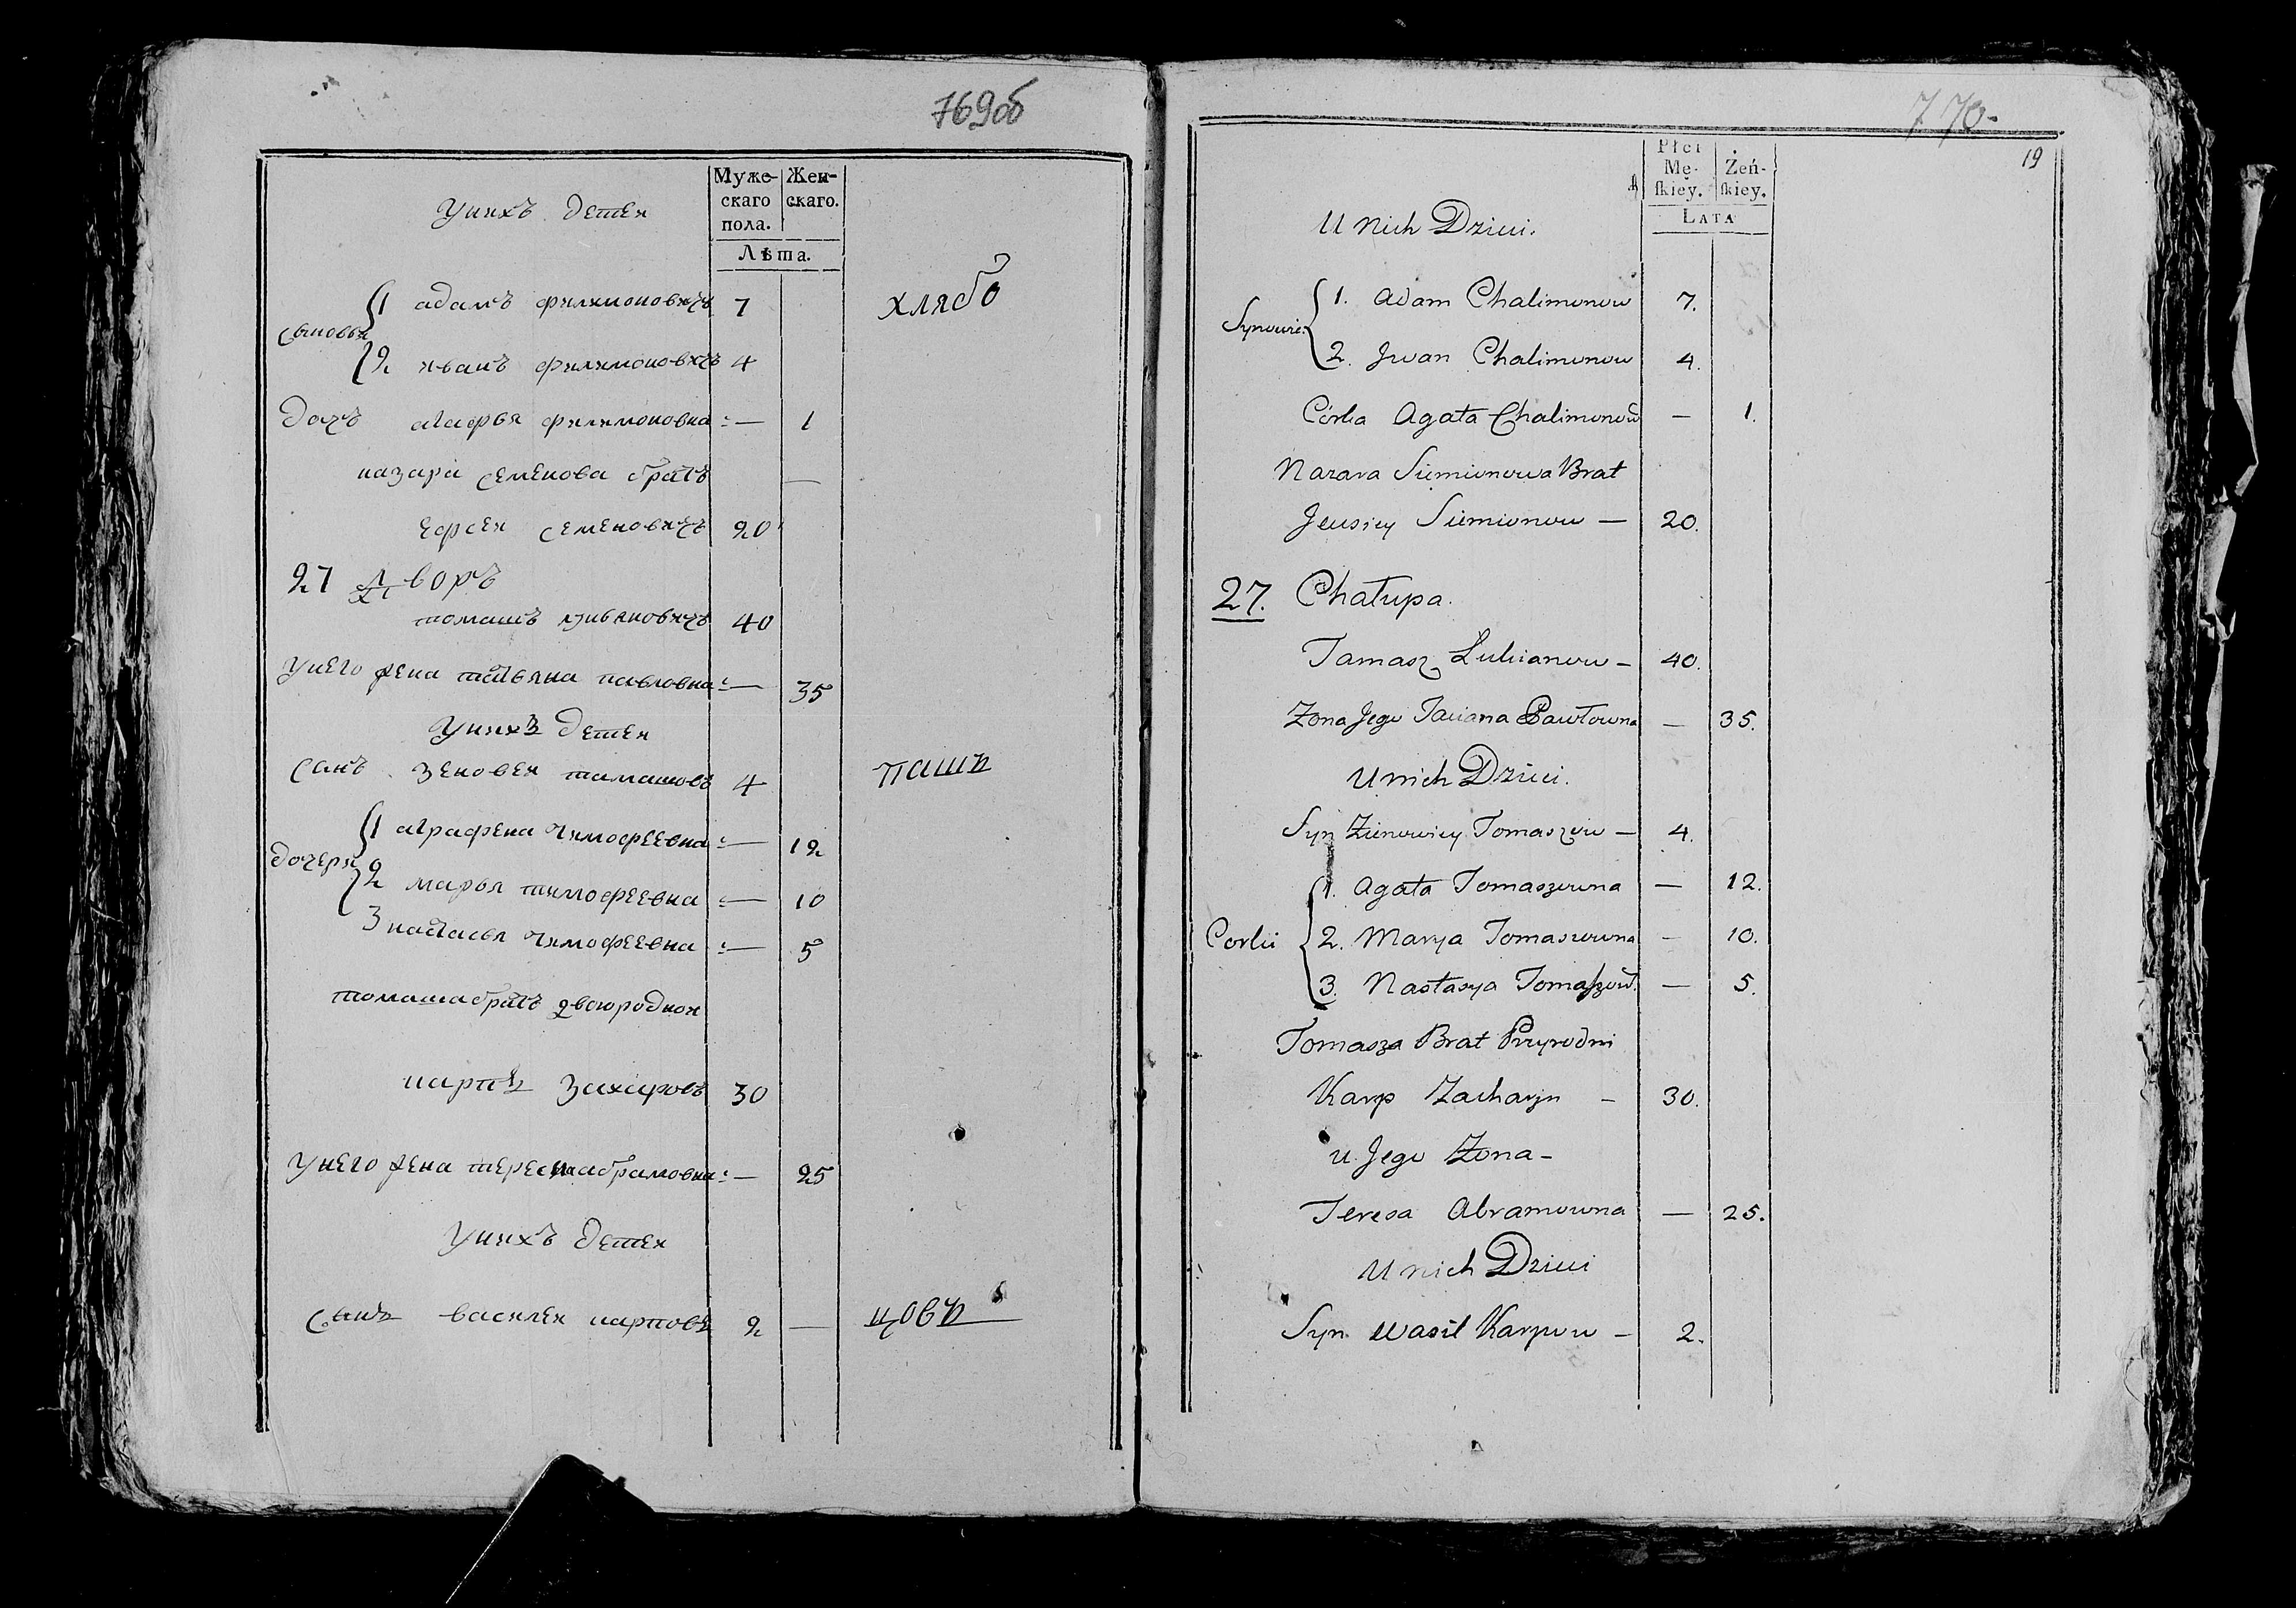 769об
Муже-
скаго
пола.
Жен-
скаго.
Лѣта.
У нихъ детеи
Сыновья
1 адамъ филимоновичъ 7
хлябо
2 иванъ филимоновичъ 4
дочъ агафья филимоновна — 1
назара семенова братъ —
ефсеи семеновичъ 20
27 Дворъ
томашъ лукьяновичъ 40
У него жена татьяна павловна — 35
У нихъ детеи
Санъ зеновеи тамашовъ 4
пашъ
дочери
1 аграфена тимофеевна — 12
2 марья тимофеевна — 10
3 настасья тимофеевна — 5
томаша братъ двоюроднои
карпъ Захаровъ 30
У него жена тереса абрамовна — 25
У нихъ детеи
Сынъ василеи карповъ 2 —
цовъ
770-
19
Płci
Mę-
ſkiey.
Żeń-
ſkiey.
LATA
U Nich Dzieci.
Synowie
1. Adam Chalimonow 7.
2. Jwan Chalimonow 4.
Córka Agata Chalimonow — 1.
Nazara Siemionowa Brat
Jeusiey Siemionow — 20.
27. Chałupa.
Tamasz Lukianow — 40.
Zona Jego Taciana Pawłowna — 35.
U nich Dzieci.
Syn Zienowiey Tomaszow — 4.
Corki
1. Agata Tomaszowna — 12.
2. Marya Tomaszowna — 10.
3. Nastasya Tomaszow. — 5.
Tomasza Brat Przyrodni
Karp Zacharjn — 30.
u Jego Zona —
Teresa Abramowna — 25.
U nich Dzieci
Syn Wasil Karpow — 2.